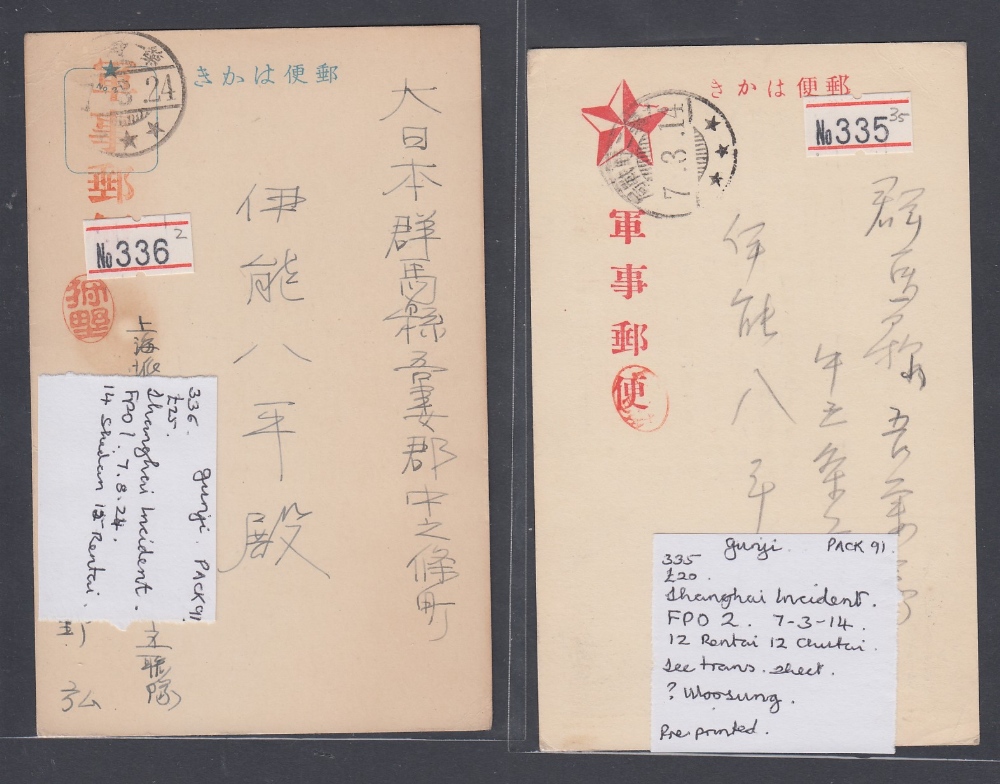 郵便はかき
3.24
軍事郵
№336
2
狩野
大日本群馬縣吾妻郡中之條町
伊能八平殿
上海派
336. gunji. PACK 91
£25.
Shanghai Incident.
FPO 1. 7.8.24.
14 Shidan 15 Rentai.
聯隊
弘
郵便はかき
7.3.14
№335
35
軍事郵便
群馬縣吾妻郡
中之條町
伊能八平
gunji. PACK 91.
335
£20.
Shanghai Incident.
FPO 2. 7-3-14.
12 Rentai 12 Chutai.
See trans. sheet.
? Woosung.
Pre printed.